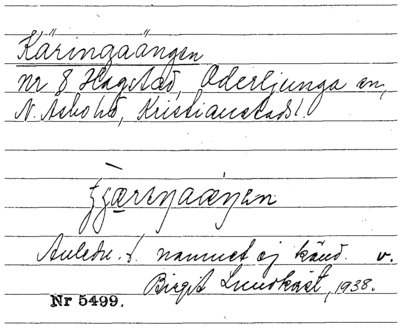 Käringaängen
nr 8 Hagstad, Oderljunga sn,
N. Åsbo hd, Kristianstads l.
Anledn. t. namnet ej känd. v.
Birgit Lundkvist, 1938.
Nr 5499.